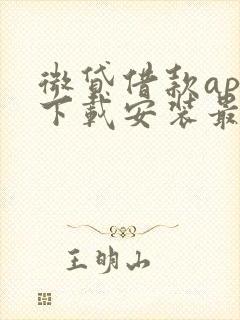 微贷借款ap
下载安装最
王明山